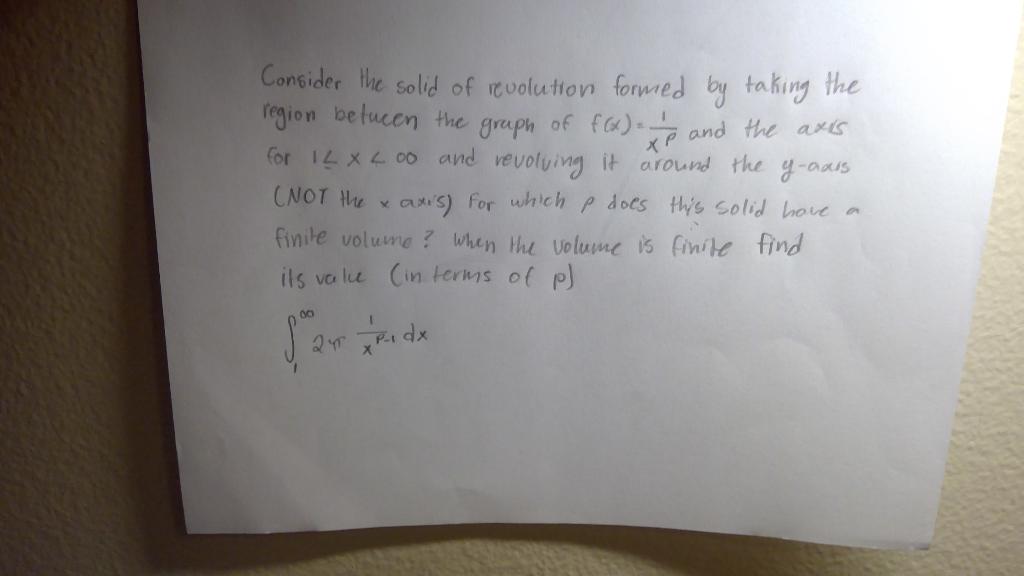 Consider the solid of revolution formed by taking the
region between the graph of f(x) = 1/x^p and the axis
for 1 ≤ x < ∞ and revolving it around the y-axis
(NOT the x axis) For which p does this solid have a
finite volume? When the volume is finite find
its value (in terms of p)
∫_1^∞ 2π 1/x^{p-1} dx